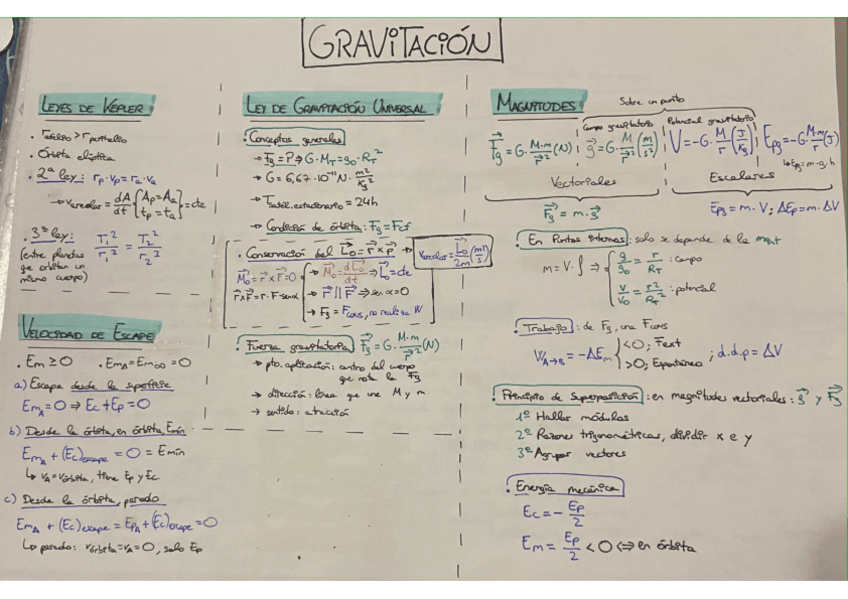 GRAVITACIÓN
LEYES DE KEPLER
· r afelio > r perihelio
· Órbita elíptica
· 2ª ley: rp·vp = ra·va
→ vareolar = dA/dt {Ap = Aa; tp = ta} = cte
· 3ª ley: T₁²/r₁³ = T₂²/r₂³
(entre planetas
que orbitan un
mismo cuerpo)
VELOCIDAD DE ESCAPE
· Em ≥ 0 · EmA = Em∞ = 0
a) Escape desde la superficie
EmA = 0 ⇒ Ec + Ep = 0
b) Desde la órbita, en órbita, Emín
EmA + (Ec)escape = 0 = Emín
↳ vA = vórbita, tiene Ep y Ec
c) Desde la órbita, parado
EmA + (Ec)escape = EpA + (Ec)escape = 0
↳ parado: vórbita = vA = 0, solo Ep
LEY DE GRAVITACIÓN UNIVERSAL
· Conceptos generales
→ Fg = P ⇒ G·MT = g₀·RT²
→ G = 6,67·10⁻¹¹ N·m²/kg²
→ Tsatél. estacionario = 24h
→ Condición de órbita: Fg = Fcf
· Conservación del L₀ = r × p → vareolar = L₀/2m (m²/s)
M₀ = r × F = 0 → M₀ = dL₀/dt ⇒ L₀ = cte
r × F = r·F·senα → r || F ⇒ sen α = 0
→ Fg = Fcons, no realiza W
· Fuerza gravitatoria Fg = G·M·m/r² (N)
→ pto. aplicación: centro del cuerpo
que nota la Fg
→ dirección: línea que une M y m
→ sentido: atracción
MAGNITUDES
Sobre un punto
Campo gravitatorio Potencial gravitatorio
Fg = G·M·m/r² (N) g = G·M/r² (m/s²) V = -G·M/r (J/kg) Epg = -G·M·m/r (J)
↳ Epg = m·g·h
Vectoriales Escalares
Fg = m·g Epg = m·V; ΔEp = m·ΔV
· En Puntos internos: solo se depende de la mint
m = V·ρ ⇒ {g/g₀ = r/RT : campo
V/V₀ = r²/RT² : potencial
· Trabajo: de Fg, una Fcons
WA→B = -ΔEm {<0; Fext
>0; Espontáneo ; d.d.p = ΔV
· Principio de Superposición: en magnitudes vectoriales: g y Fg
1º Hallar módulos
2º Razones trigonométricas, dividir x e y
3º Agrupar vectores
· Energía mecánica
Ec = -Ep/2
Em = Ep/2 < 0 ⇔ en órbita